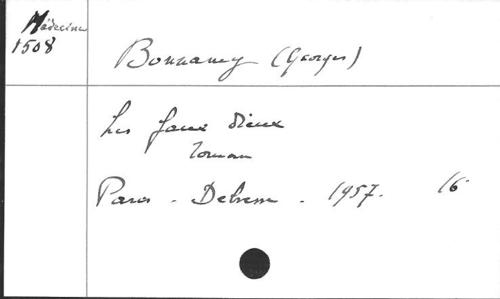 Médecine
1508
Bonnamy (Georges)
Les faux Dieux
roman
Paris - Debresse - 1957. 16°